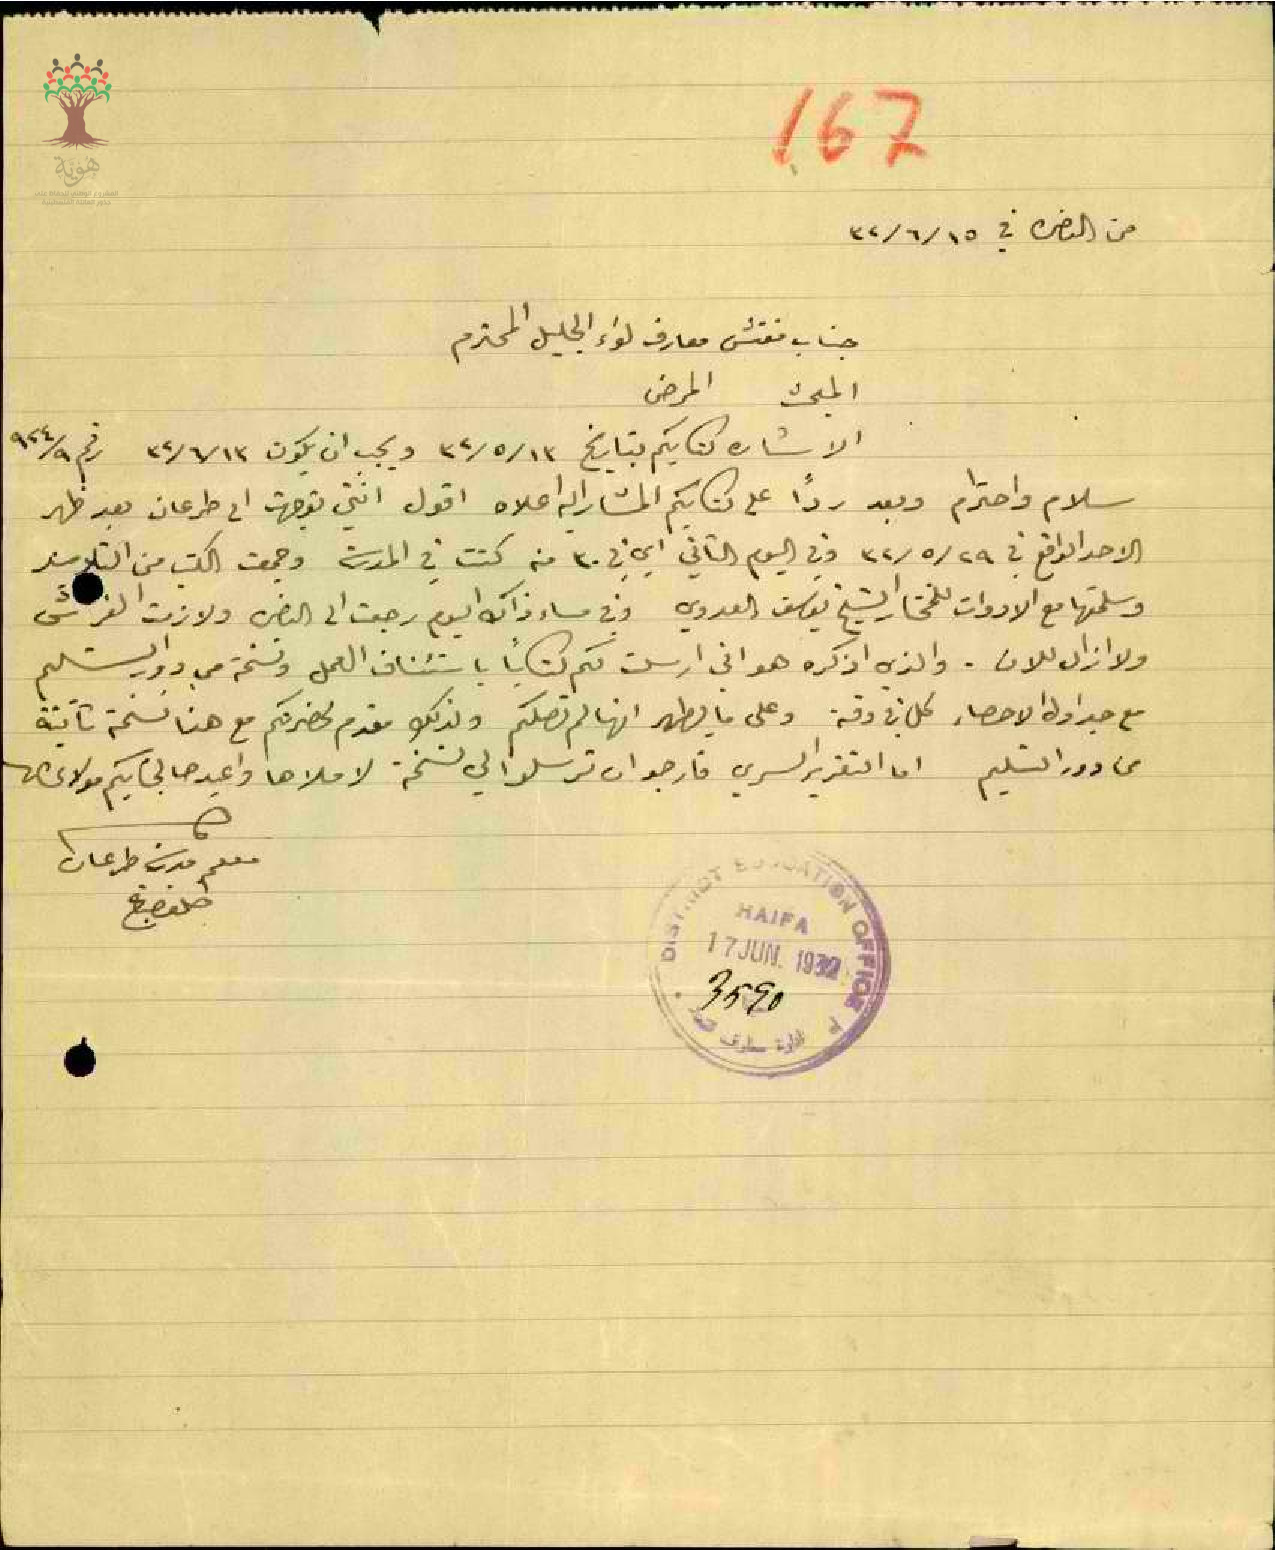 هوية
المشروع الوطني للحفاظ على
جذور العائلة الفلسطينية
167
من الناصره في ١٥/٦/٣٢
جناب مفتش معارف لواء الجليل المحترم
المبحث المرض
الاشاره كتابكم بتاريخ ١٣/٥/٣٢ ويجب ان يكون ١٣/٦/٣٢ رقم ٩/٩٢٤
سلام واحترام وبعد ردًا على كتابكم المشار اليه اعلاه اقول انني توجهت الى طرعان بعد ظهر
الاحد الواقع في ٢٩/٥/٣٢ وفي اليوم الثاني اي في ٣٠ منه كنت في المدرسة وجمعت الكتب من التلاميذ
وسلمتها مع الادوات للمختار الشيخ يوسف العدوي وفي مساء ذاك اليوم رجعت الى الناصره ولازمت الفراش
ولا ازال للان - والذي اذكره هو اني ارسلت لكم كتابًا باستئناف العمل ونسخة من دور التسليم
مع جداول الاحصاء كل في وقته وعلى ما يظهر انها لم تصلكم ولذلك مقدم لحضرتكم مع هذا نسخة ثانية
من دور التسليم اما التقرير السري فارجو ان ترسلوا لي نسخة لاملاها واعيدها لجنابكم مولاي
معلم مدرسة طرعان
DISTRICT EDUCATION OFFICE
HAIFA
17 JUN. 1932
3590
ادارة معارف